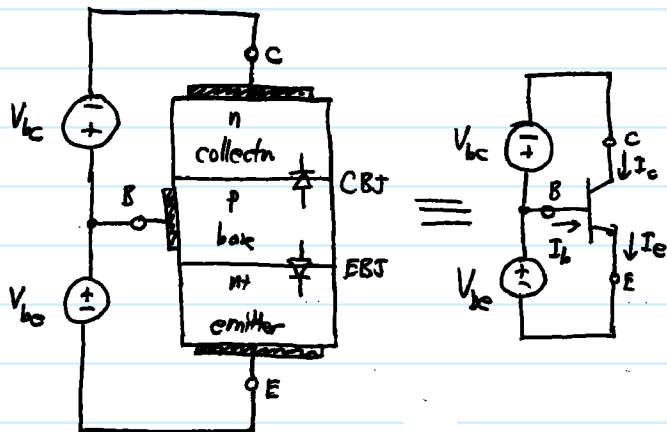 C
n
collectn
V_bc
− +
CBJ
B
p
base
EBJ
n+
emitter
V_be
+ −
E
≡
V_bc
− +
C
I_c
B
I_b
I_e
V_be
+ −
E